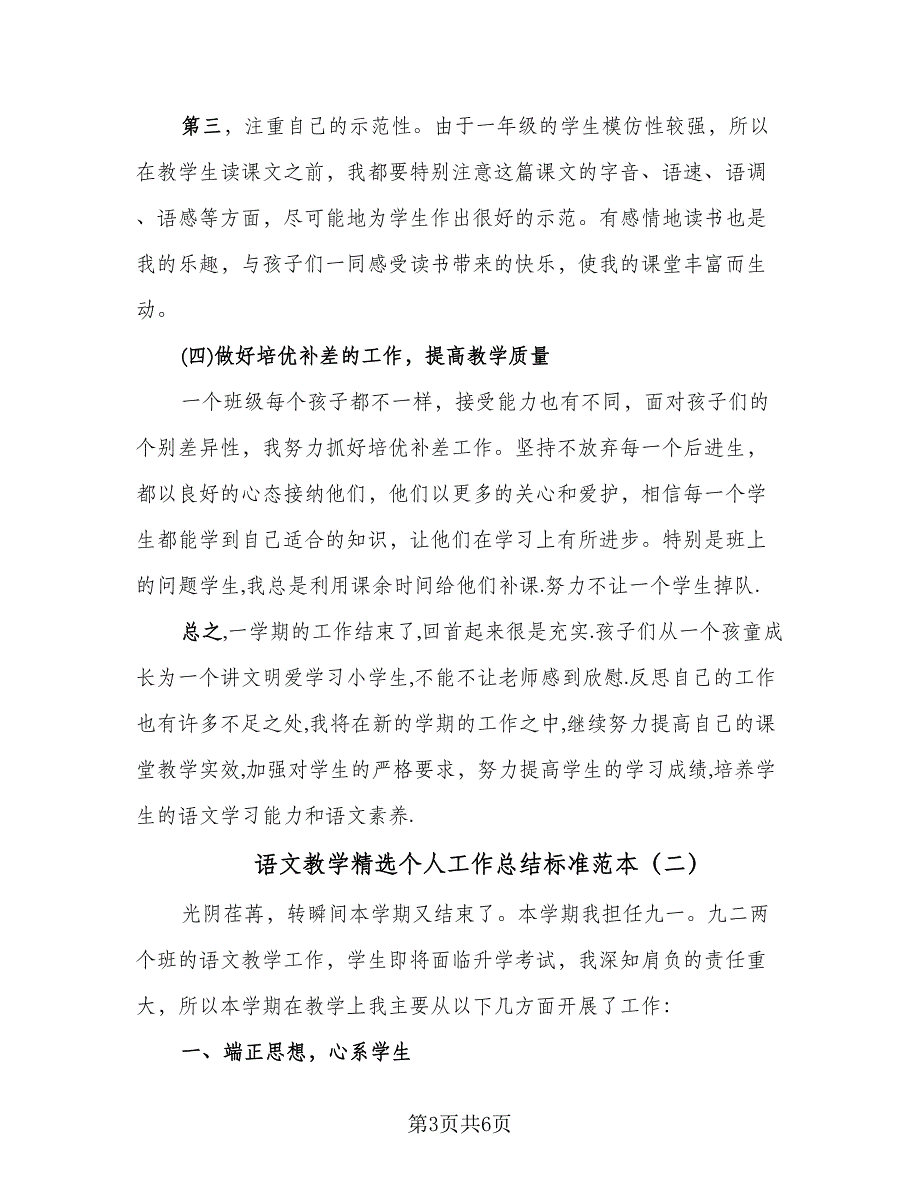 第三，注重自己的示范性。由于一年级的学生模仿性较强，所以
在教学生读课文之前，我都要特别注意这篇课文的字音、语速、语调
、语感等方面，尽可能地为学生作出很好的示范。有感情地读书也是
我的乐趣，与孩子们一同感受读书带来的快乐，使我的课堂丰富而生
动。
(四)做好培优补差的工作，提高教学质量
一个班级每个孩子都不一样，接受能力也有不同，面对孩子们的
个别差异性，我努力抓好培优补差工作。坚持不放弃每一个后进生，
都以良好的心态接纳他们，他们以更多的关心和爱护，相信每一个学
生都能学到自己适合的知识，让他们在学习上有所进步。特别是班上
的问题学生,我总是利用课余时间给他们补课.努力不让一个学生掉队.
总之,一学期的工作结束了,回首起来很是充实.孩子们从一个孩童成
长为一个讲文明爱学习小学生,不能不让老师感到欣慰.反思自己的工作
也有许多不足之处,我将在新的学期的工作之中,继续努力提高自己的课
堂教学实效,加强对学生的严格要求，努力提高学生的学习成绩,培养学
生的语文学习能力和语文素养.
语文教学精选个人工作总结标准范本（二）
光阴荏苒，转瞬间本学期又结束了。本学期我担任九一。九二两
个班的语文教学工作，学生即将面临升学考试，我深知肩负的责任重
大，所以本学期在教学上我主要从以下几方面开展了工作：
一、端正思想，心系学生
第3页共6页